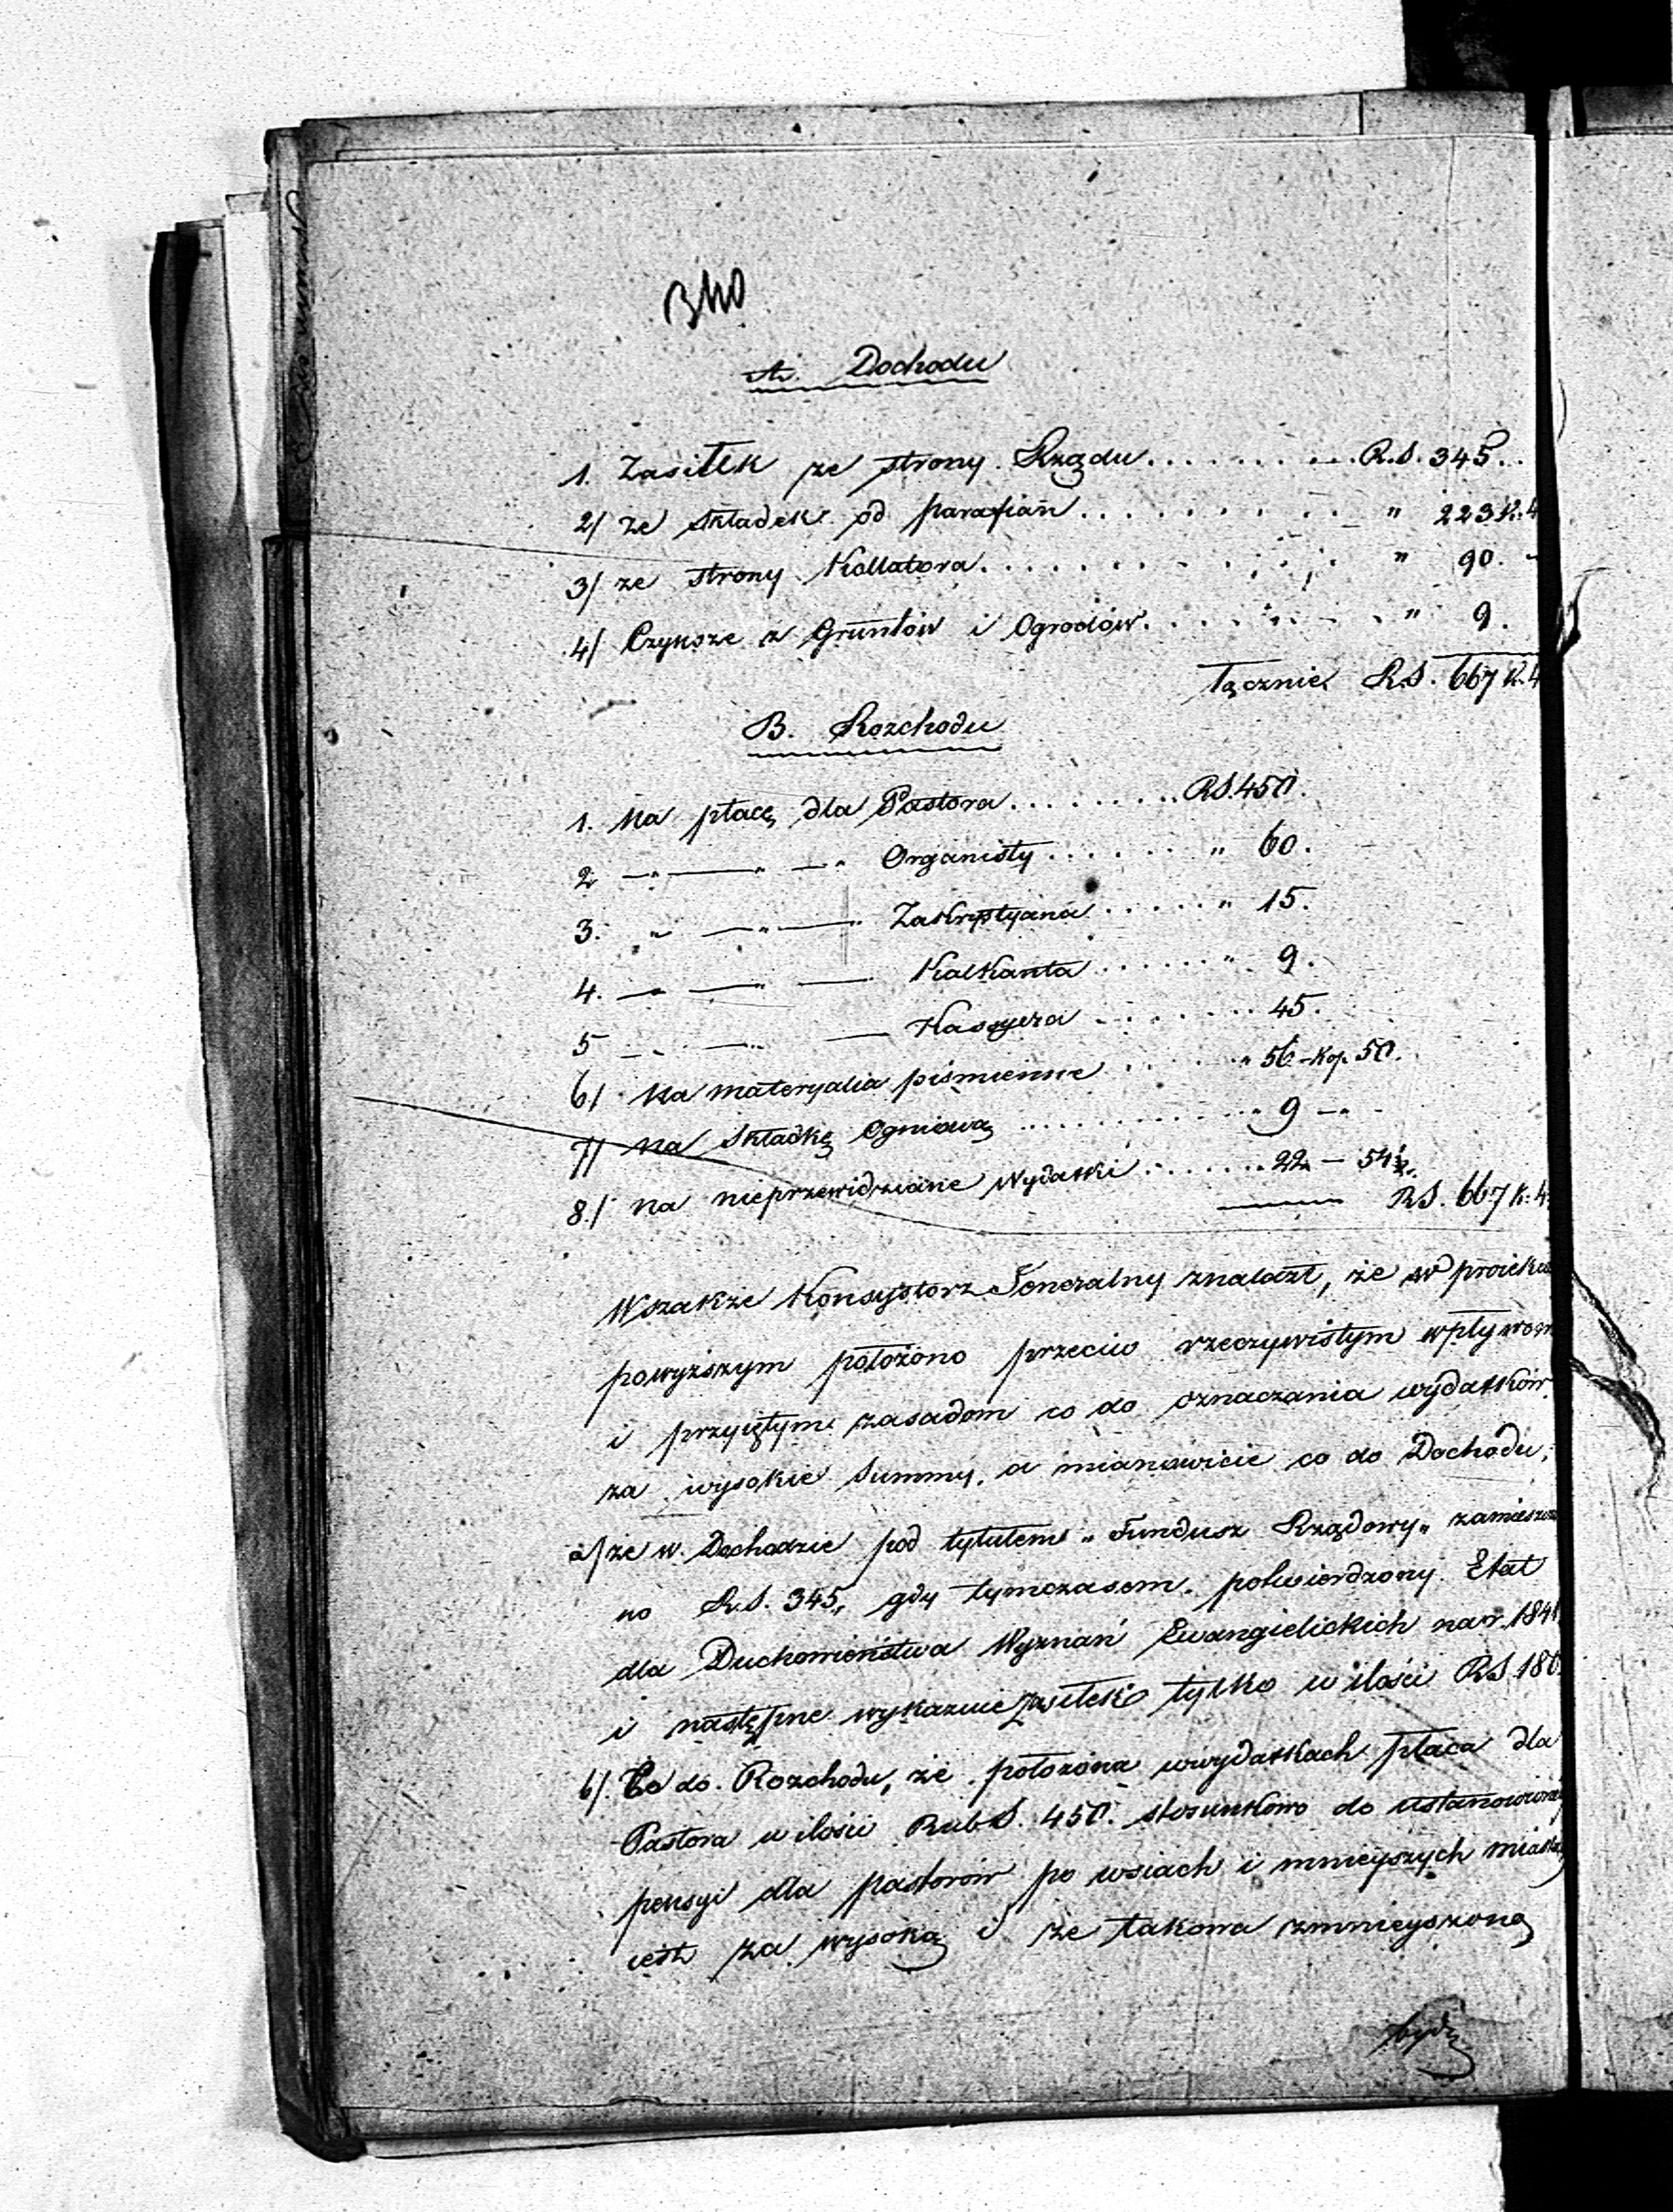 340
A. Dochodu
1. Zasiłek ze strony Rządu . . . . . . . . . . R.S. 345. .
2/ ze składek od parafian . . . . . . . . . . " 223 K. 4
3/ ze strony Kollatora . . . . . . . . . . " 90. -
4/ Czynsze z Gruntów i Ogrodów . . . . . . . . " 9.
łącznie R.S. 667 K. 4
B. Rozchodu
1. Na płacę dla Pastora . . . . . . . . . RS. 450.
2 —"— " —" Organisty . . . . . . " 60.
3. " —"— " Zakrystyana . . . . . " 15.
4. —" —" — Kalkanta . . . . . . " 9.
5 — " —" — Kassyera . . . . . . . 45.
6/ Na materyalia piśmienne . . . . . " 56 - Kop. 50.
7/ na Składkę Ogniową . . . . . . . . . . " 9 —"-
8./ na nieprzewidziane Wydatki . . . . . . . 22 — 54½
RS. 667 K. 4
Wszakże Konsystorz Jeneralny znalazł, że w proieku
powyższym położono przeciw rzeczywistym wpływom
i przyiętym zasadom co do oznaczania wydatków
za wysokie Summy, a mianowicie co do Dochodu,
a/ że w Dochodzie pod tytułem „Fundusz Rządowy„ zamieszczo
no R.S. 345, gdy tymczasem potwierdzony Etat
dla Duchowieństwa Wyznań Ewangielickich na r. 1841
i następne wykazuie zasiłek tylko w ilości RS 180
b/. Co do Rozchodu, że położona w wydatkach płaca dla
Pastora w ilości Rub S. 450. stosunkowo do ustanowioney
pensyi dla pastorów po wsiach i mnieyszych miastach
iest za wysoką i że takowa zmnieyszoną
bydź